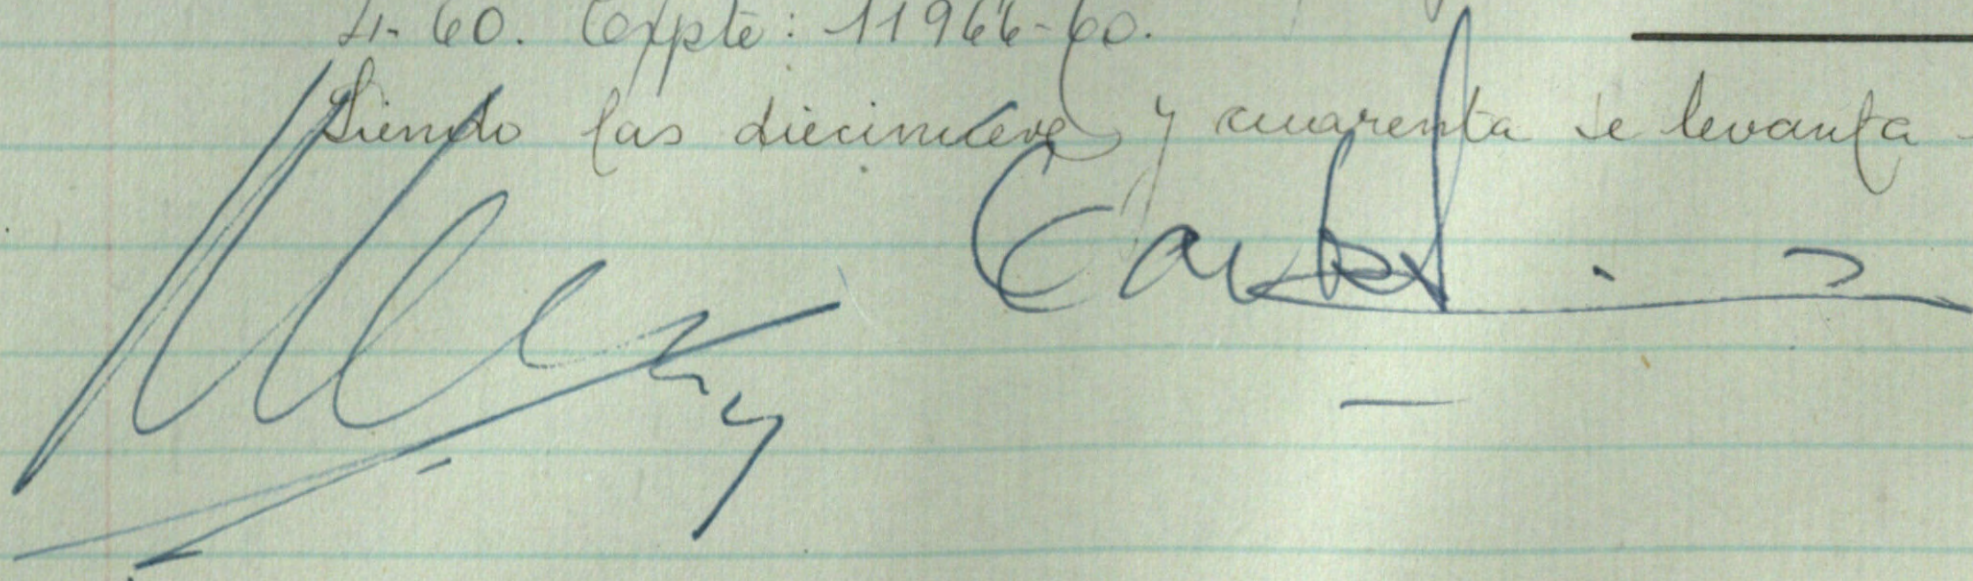 4-60. Expte: 11966-60.
Siendo las diecinueve y cuarenta se levanta